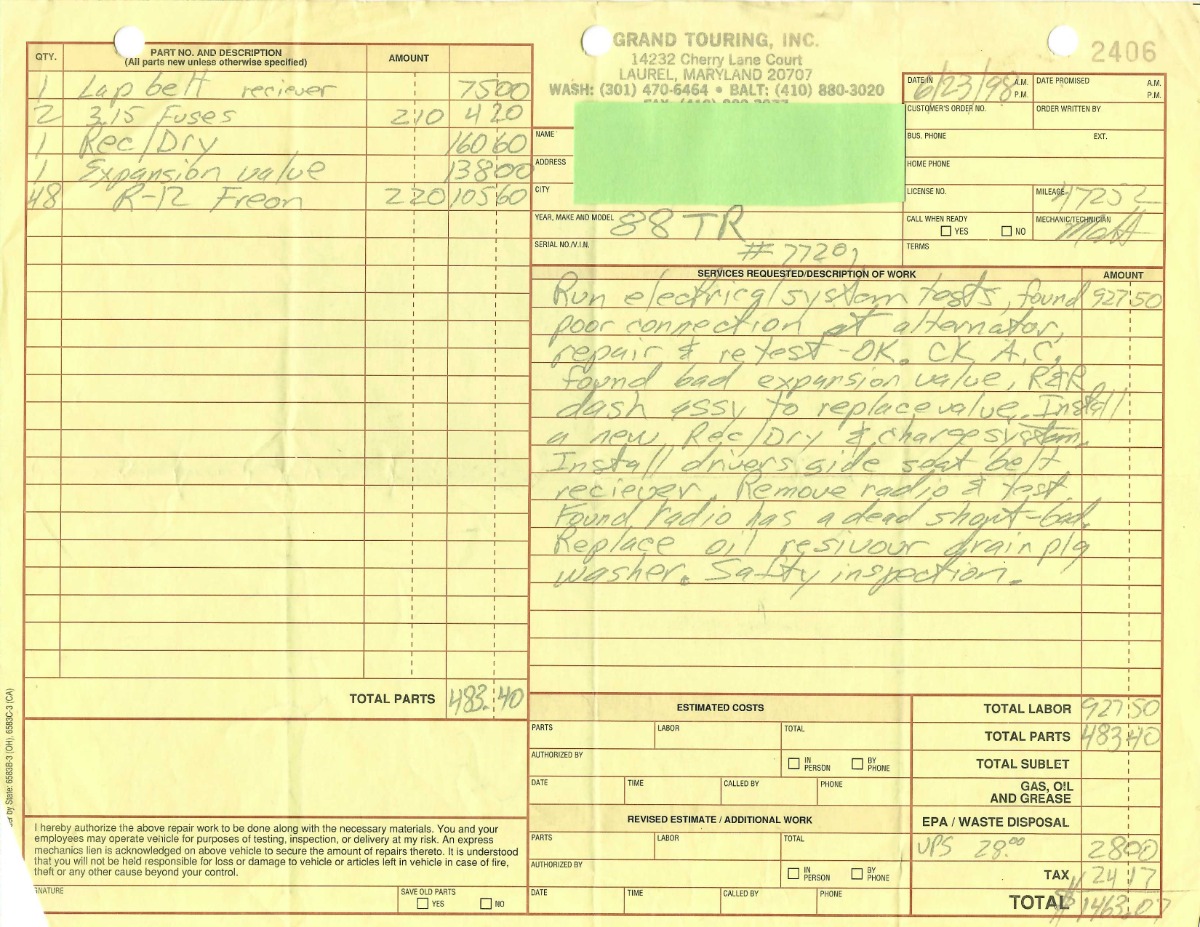 GRAND TOURING, INC.
14232 Cherry Lane Court
LAUREL, MARYLAND 20707
WASH: (301) 470-6464 • BALT: (410) 880-3020
2406
QTY. PART NO. AND DESCRIPTION AMOUNT
(All parts new unless otherwise specified)
1 Lap belt reciever 75 00
2 3.15 Fuses 2 10 4 20
1 Rec/Dry 160 60
1 Expansion valve 138 00
48 R-12 Freon 2 20 105 60
TOTAL PARTS 483.40
DATE IN 6/23/98 A.M. P.M. DATE PROMISED A.M. P.M.
CUSTOMER'S ORDER NO. ORDER WRITTEN BY
NAME
BUS. PHONE EXT.
ADDRESS
HOME PHONE
CITY
LICENSE NO. MILEAGE 47252
YEAR, MAKE AND MODEL 88 TR
CALL WHEN READY YES NO MECHANIC/TECHNICIAN Matt
SERIAL NO./V.I.N. #77201
TERMS
SERVICES REQUESTED/DESCRIPTION OF WORK AMOUNT
Run electrical system tests, found 927 50
poor connection at alternator,
repair & retest-OK. CK A.C.
found bad expansion valve, R&R
dash assy to replace valve. Install
a new Rec/Dry & charge system.
Install drivers side seat belt
reciever. Remove radio & test.
Found radio has a dead short-bad.
Replace oil resivour drain plg
washer. Safty inspection.
ESTIMATED COSTS
PARTS LABOR TOTAL
AUTHORIZED BY IN PERSON BY PHONE
DATE TIME CALLED BY PHONE
REVISED ESTIMATE / ADDITIONAL WORK
PARTS LABOR TOTAL
AUTHORIZED BY IN PERSON BY PHONE
DATE TIME CALLED BY PHONE
TOTAL LABOR 927 50
TOTAL PARTS 483 40
TOTAL SUBLET
GAS, OIL
AND GREASE
EPA / WASTE DISPOSAL
UPS 28.00 28 00
TAX 24 17
TOTAL $1463.07
I hereby authorize the above repair work to be done along with the necessary materials. You and your
employees may operate vehicle for purposes of testing, inspection, or delivery at my risk. An express
mechanics lien is acknowledged on above vehicle to secure the amount of repairs thereto. It is understood
that you will not be held responsible for loss or damage to vehicle or articles left in vehicle in case of fire,
theft or any other cause beyond your control.
SAVE OLD PARTS
YES NO
by State: 6583B-3 (OH), 6583C-3 (CA)